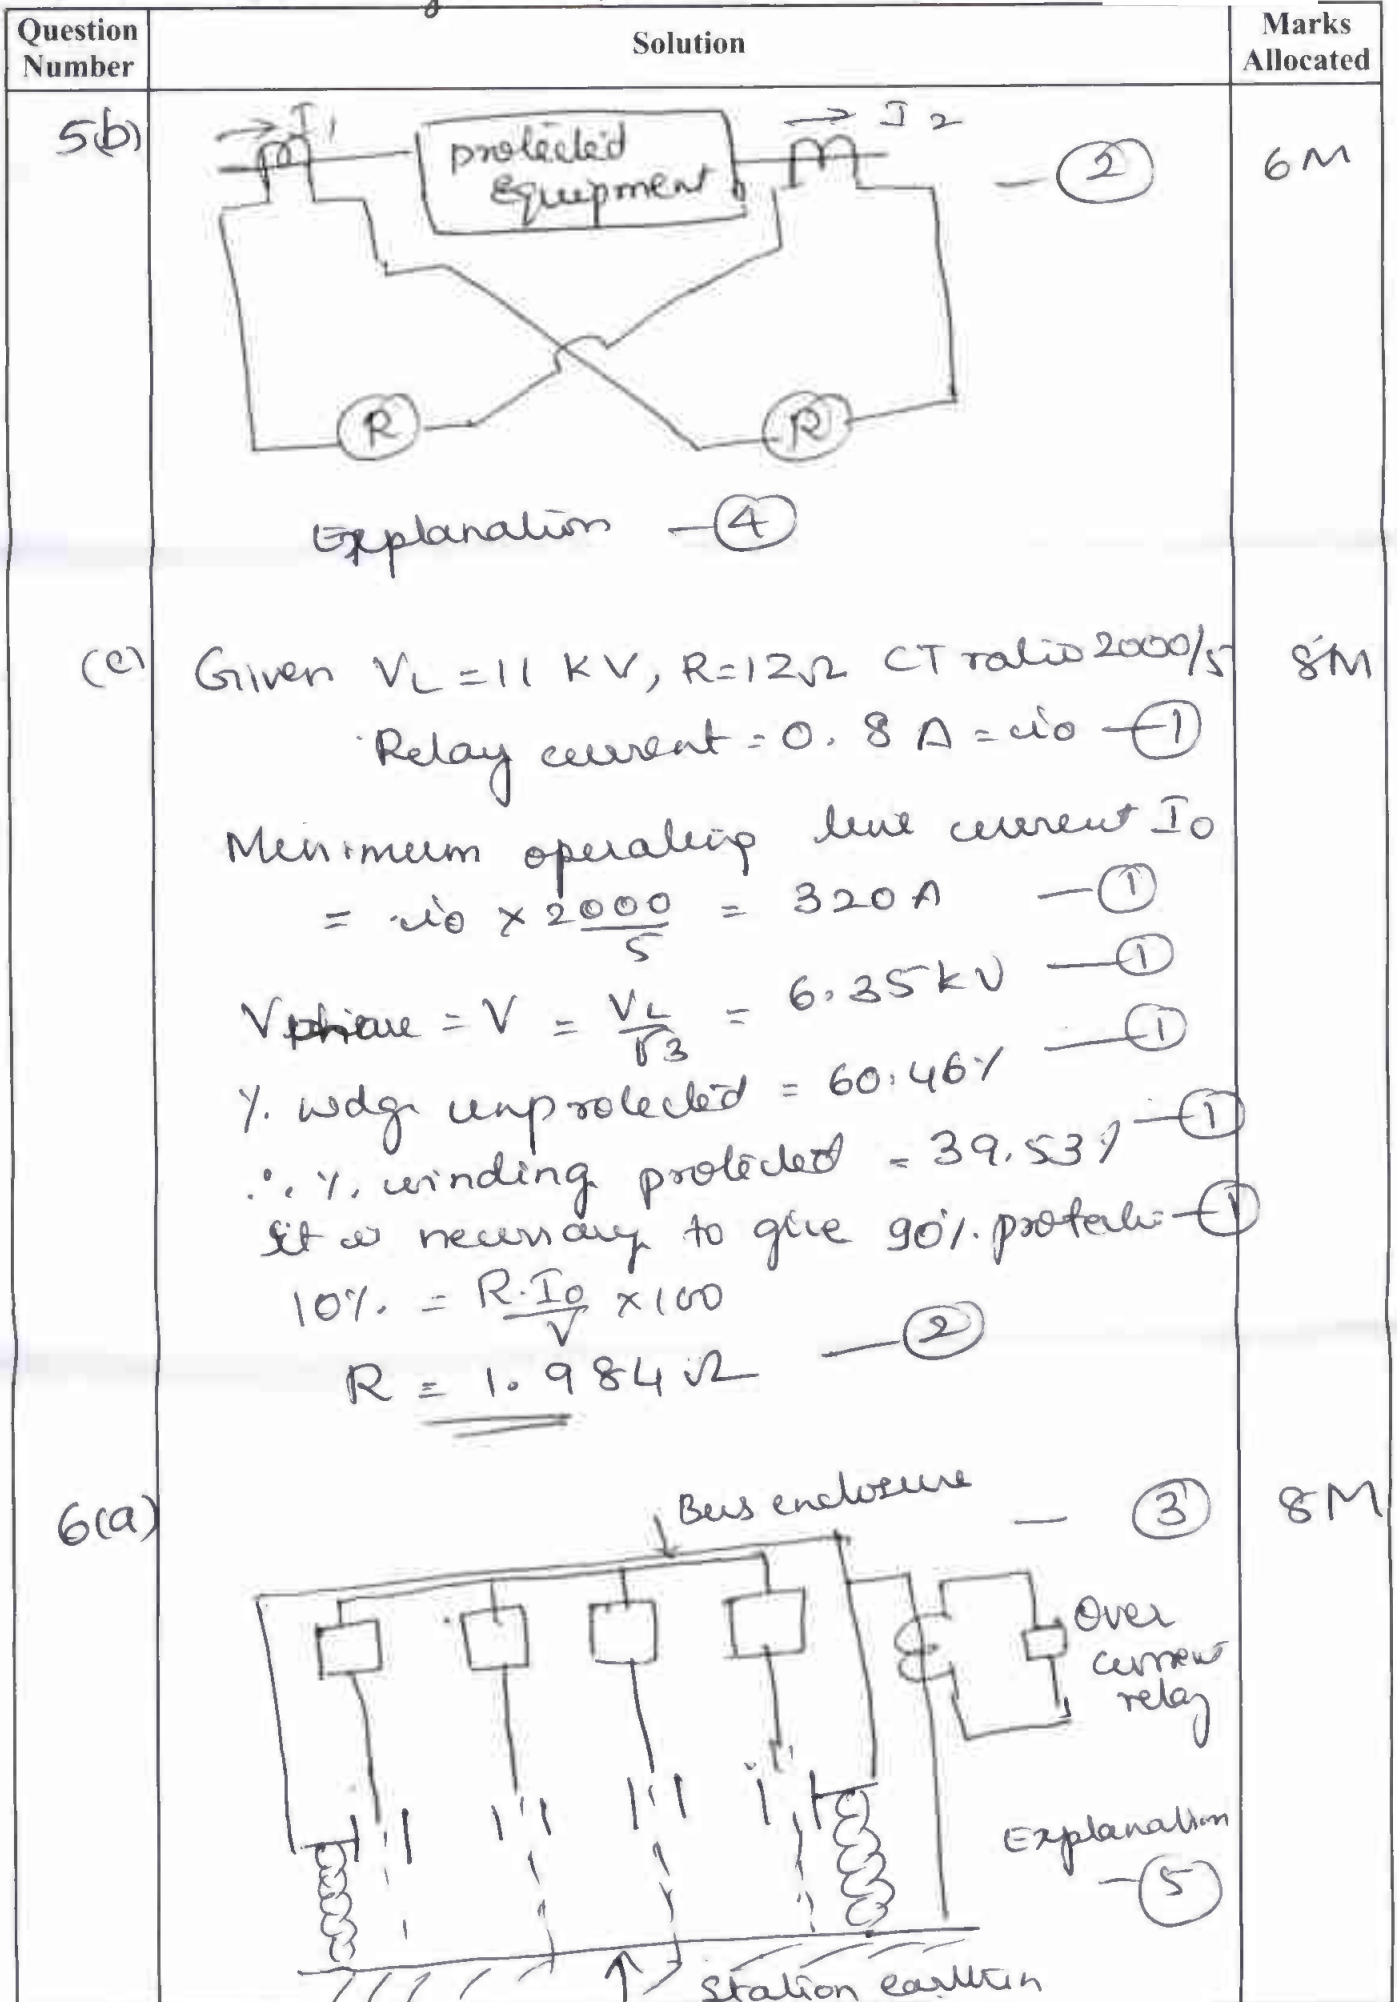 Question Number
Solution
Marks Allocated
5(b)
I1
protected Equipment
I2
— 2
6M
R
R
Explanation — 4
(c)
Given VL = 11 KV, R=12Ω CT ratio 2000/5
8M
Relay current = 0.8 A = io — 1
Minimum operating line current Io
= io × 2000/5 = 320 A — 1
Vphase = V = VL/√3 = 6.35 kV — 1
% wdg unprotected = 60.46% — 1
∴ % winding protected = 39.53% — 1
It is necessary to give 90% protectn — 1
10% = R.Io/V × 100
R = 1.984 Ω — 2
6(a)
Bus enclosure
— 3
8M
Over current relay
Explanation
— 5
Station